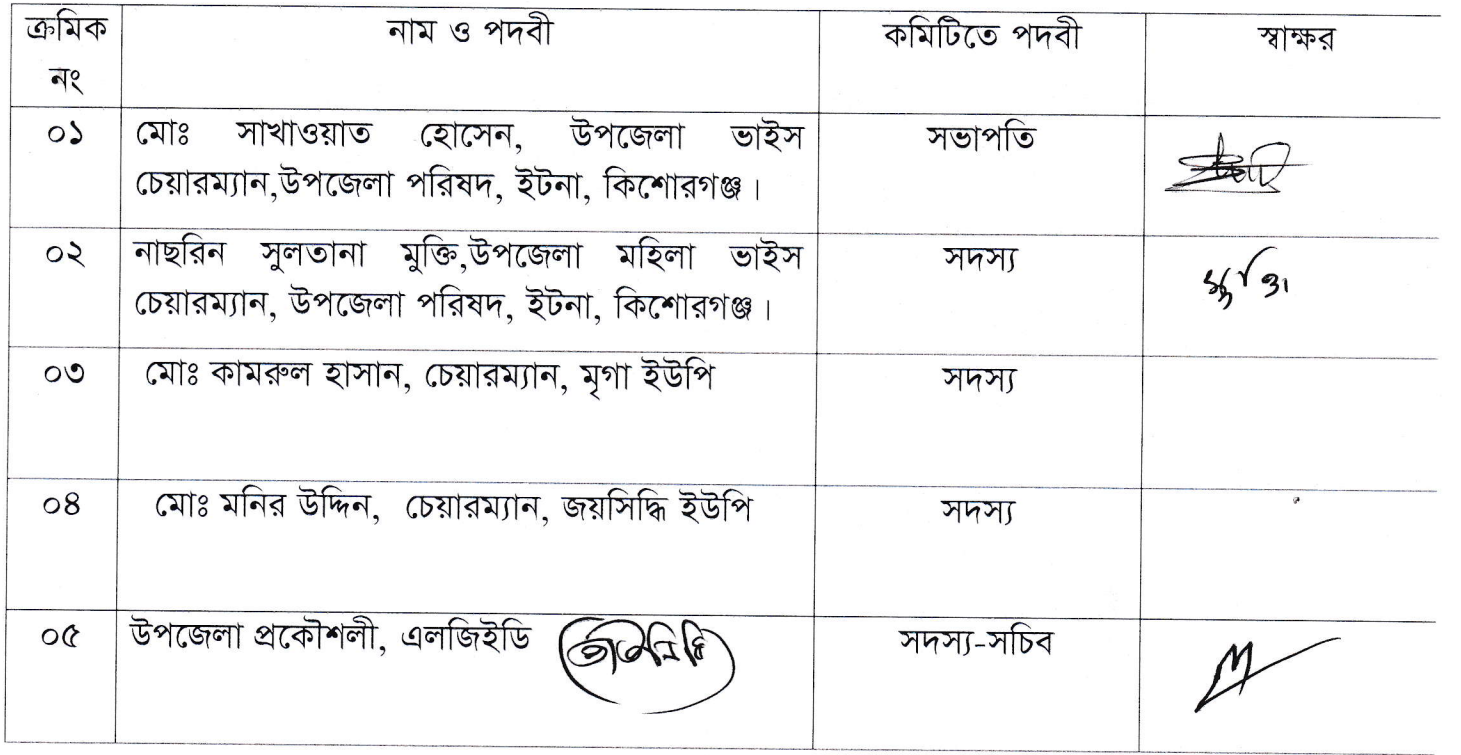 ক্রমিক নাম ও পদবী কমিটিতে পদবী স্বাক্ষর
নং
০১ মোঃ সাখাওয়াত হোসেন, উপজেলা ভাইস সভাপতি
চেয়ারম্যান,উপজেলা পরিষদ, ইটনা, কিশোরগঞ্জ।
০২ নাছরিন সুলতানা মুক্তি,উপজেলা মহিলা ভাইস সদস্য
চেয়ারম্যান, উপজেলা পরিষদ, ইটনা, কিশোরগঞ্জ।
০৩ মোঃ কামরুল হাসান, চেয়ারম্যান, মৃগা ইউপি সদস্য
০৪ মোঃ মনির উদ্দিন, চেয়ারম্যান, জয়সিদ্ধি ইউপি সদস্য
০৫ উপজেলা প্রকৌশলী, এলজিইডি সদস্য-সচিব